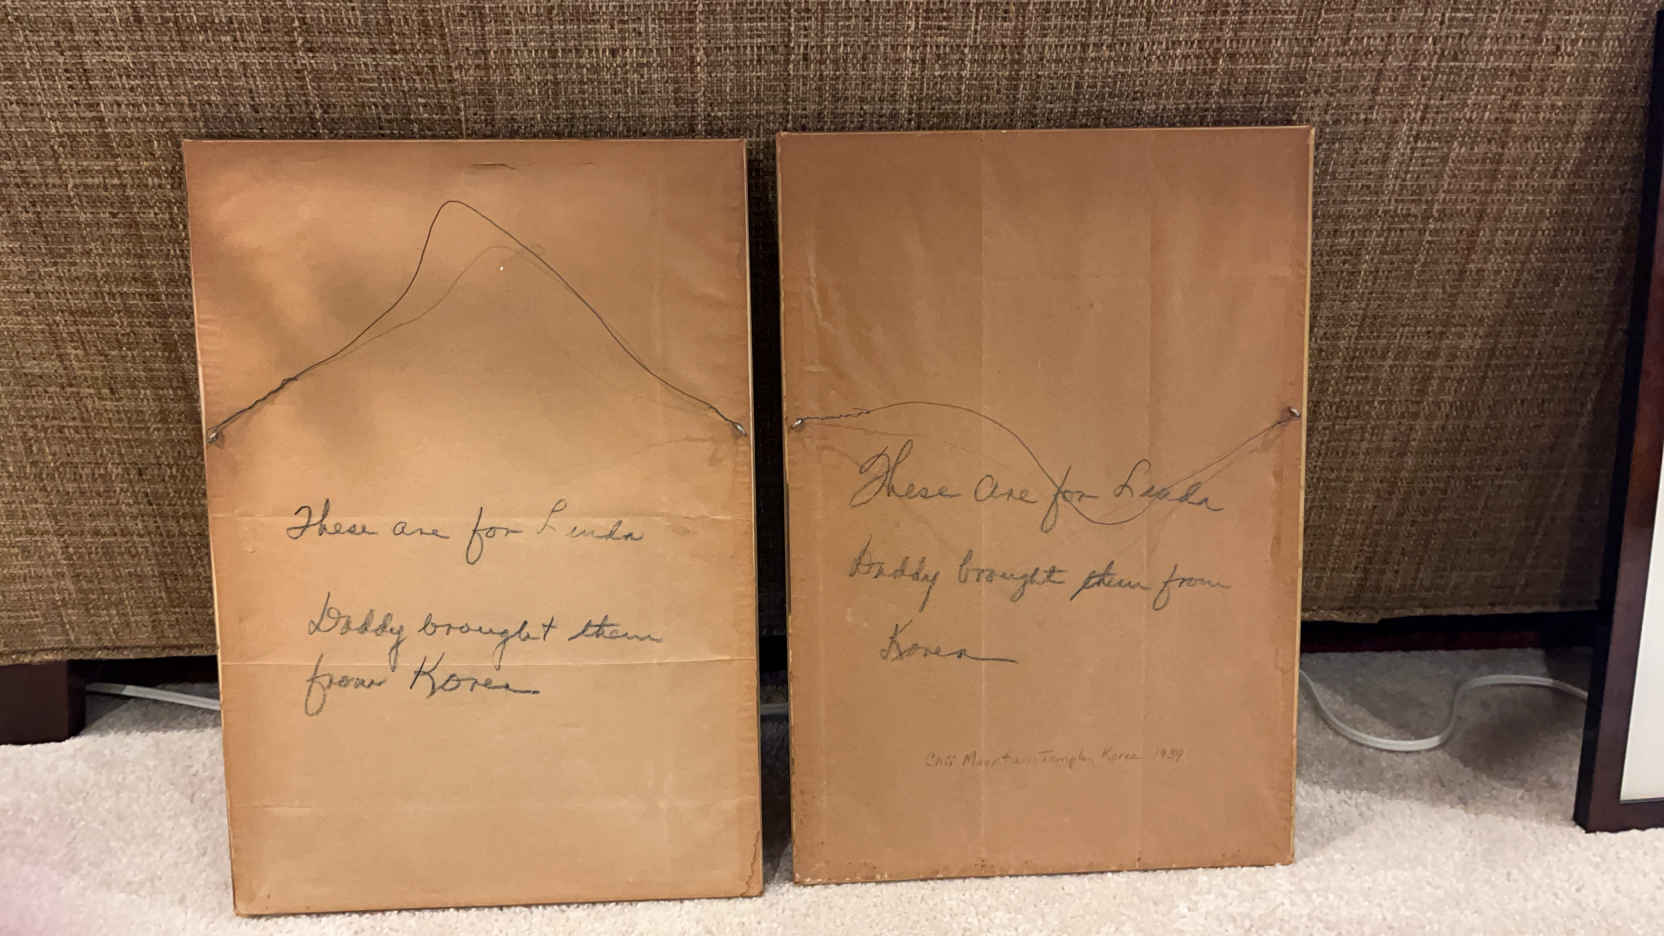 These are for Linda
Daddy brought them
from Korea
These are for Linda
Daddy brought them from
Korea
Mountain Temple, Korea 1939